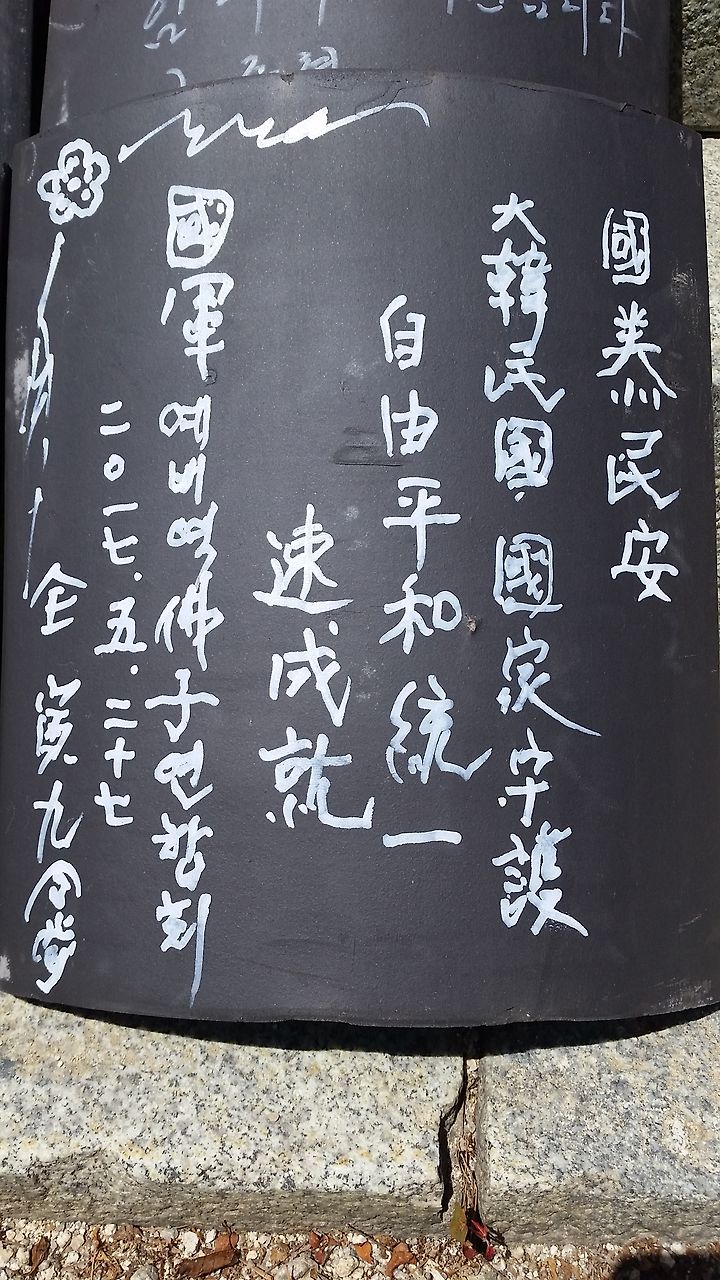 國泰民安
大韓民國 國家守護
自由平和統一
速成就
國軍예비역佛子연합회
二〇一七.五.二十七
全寅九 合掌